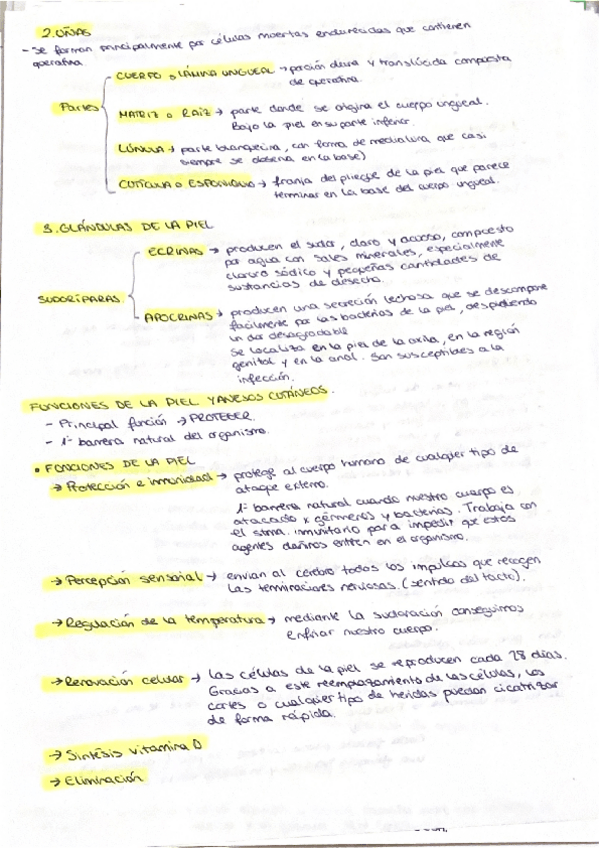 2. UÑAS
- Se forman principalmente por células muertas endurecidas que contienen
queratina.
Partes
CUERPO o LÁMINA UNGUEAL → porción dura y translúcida compuesta
de queratina.
MATRIZ o RAÍZ → parte donde se origina el cuerpo ungueal.
Bajo la piel en su parte inferior.
LÚNULA → parte blanquecina, con forma de media luna que casi
siempre se observa en la base)
CUTÍCULA o EPONIQUIO → franja del pliegue de la piel que parece
terminar en la base del cuerpo ungueal.
3. GLÁNDULAS DE LA PIEL
SUDORÍPARAS
ECRINAS → producen el sudor, claro y acuoso, compuesto
por agua con sales minerales, especialmente
cloruro sódico y pequeñas cantidades de
sustancias de desecho.
APOCRINAS → producen una secreción lechosa que se descompone
facilmente por las bacterias de la piel, despidiendo
un olor desagradable
Se localiza en la piel de la axila, en la región
genital y en la anal. Son susceptibles a la
infección.
FUNCIONES DE LA PIEL Y ANEXOS CUTÁNEOS.
- Principal función → PROTEGER.
- 1ª barrera natural del organismo.
• FUNCIONES DE LA PIEL
→ Protección e inmunidad → protege al cuerpo humano de cualquier tipo de
ataque externo.
1ª barrera natural cuando nuestro cuerpo es
atacado x gérmenes y bacterias. Trabaja con
el stma. inmunitario para impedir que estos
agentes dañinos entren en el organismo.
→ Percepción sensorial → envían al cerebro todos los impulsos que recogen
las terminaciones nerviosas. (sentido del tacto).
→ Regulación de la temperatura → mediante la sudoración conseguimos
enfriar nuestro cuerpo.
→ Renovación celular → las células de la piel se reproducen cada 28 días.
Gracias a este reemplazamiento de las células, los
cortes o cualquier tipo de heridas puedan cicatrizar
de forma rápida.
→ Síntesis vitamina D
→ Eliminación